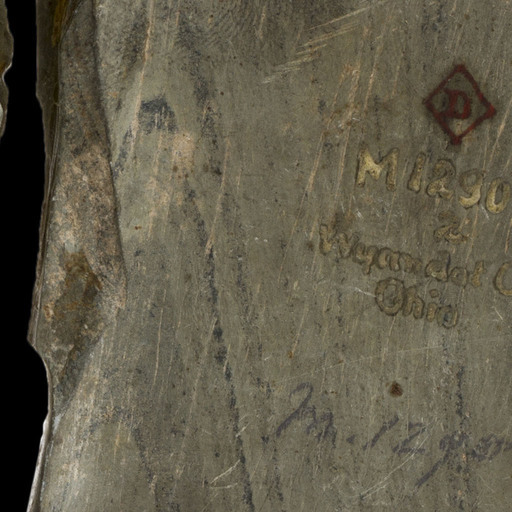 D
M1290
2
Wyandot C
Ohio
M.1290